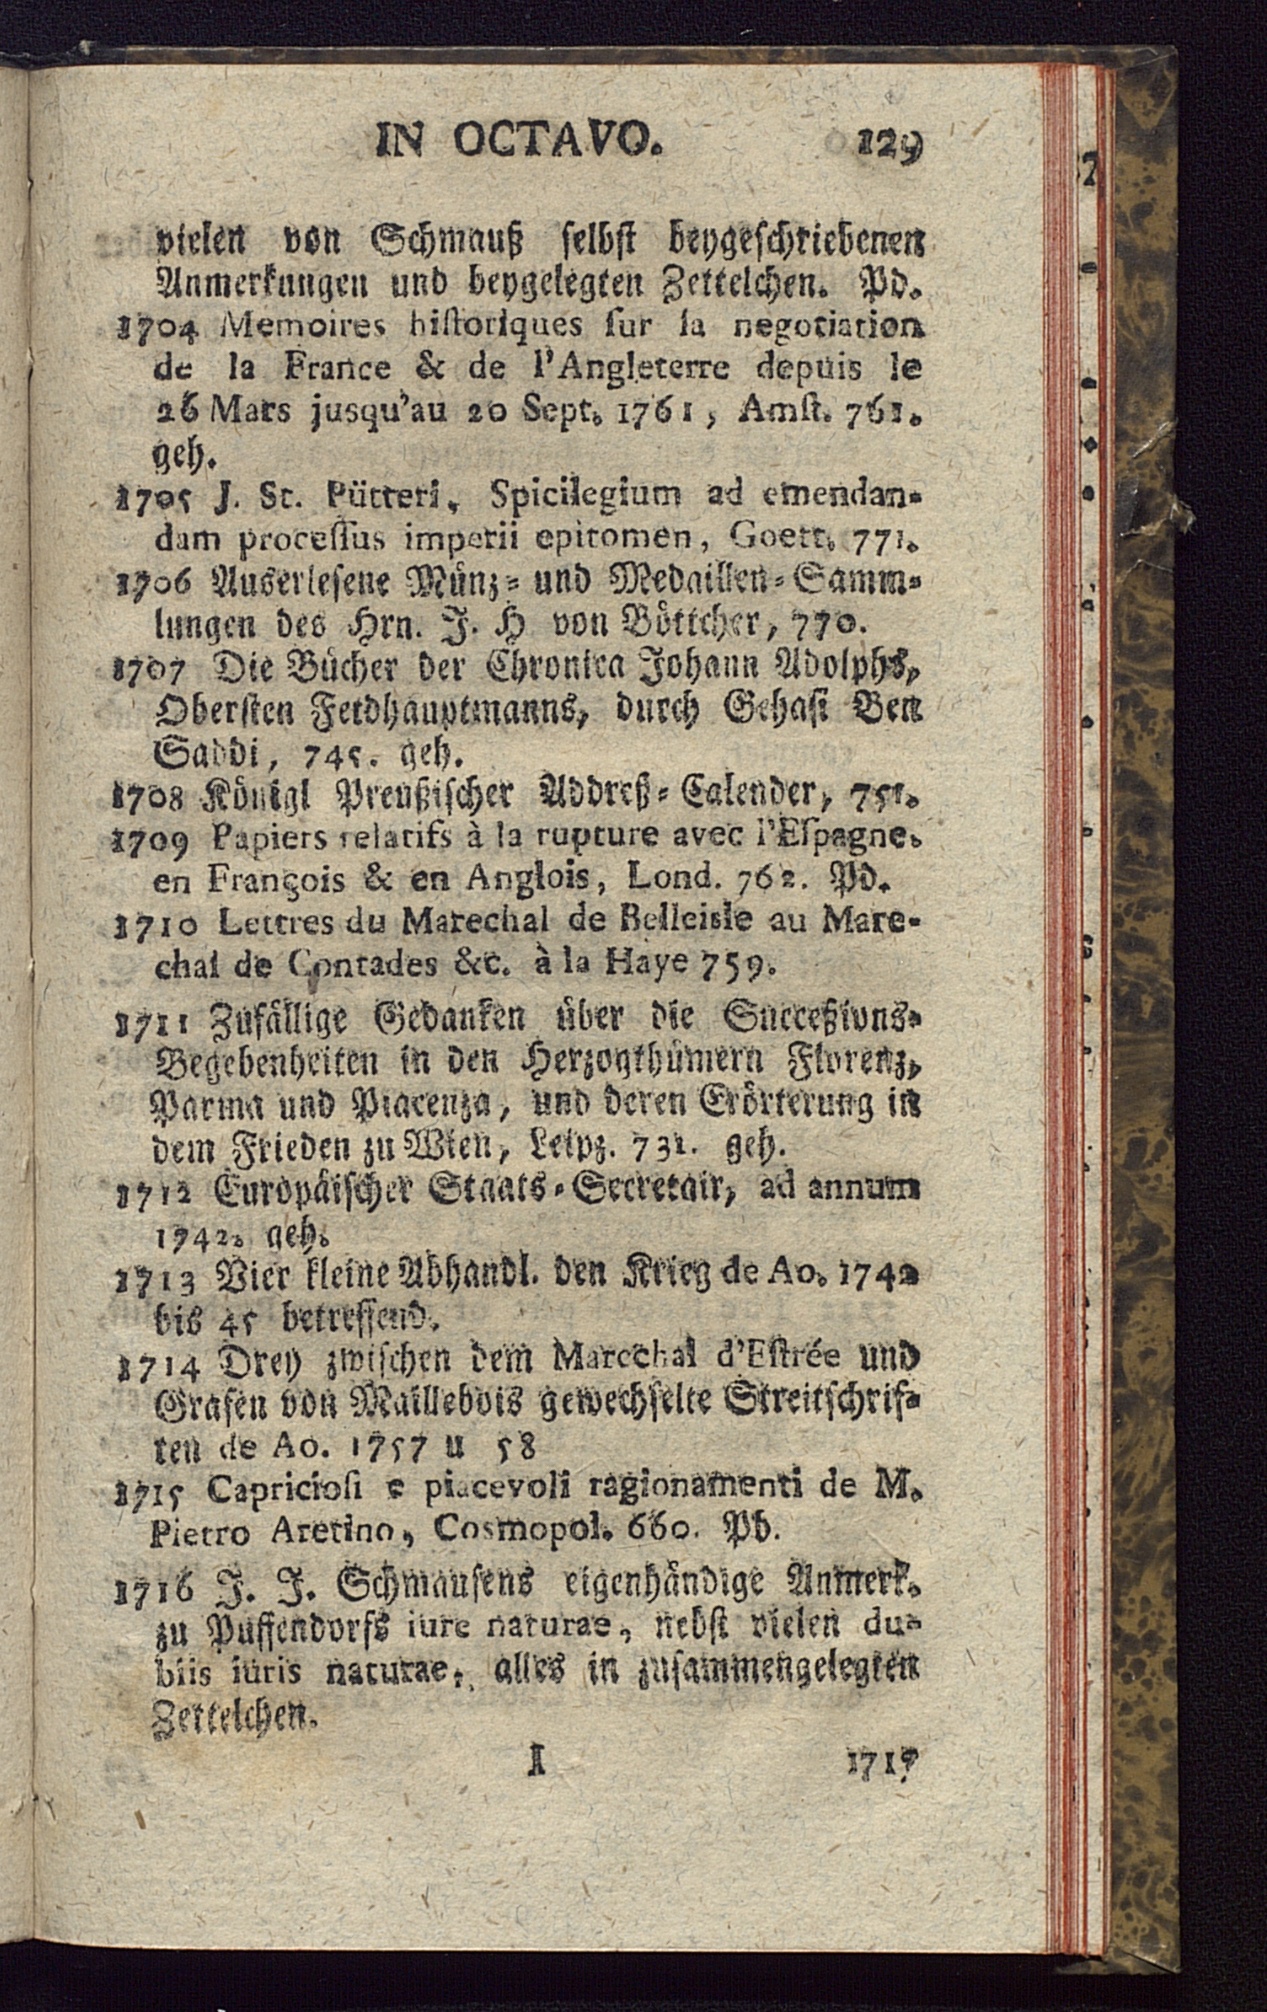 IN OCTAVO. 129
vielen von Schmauß selbst beygeschriebenen
Anmerkungen und beygelegten Zettelchen. Pd.
1704 Memoires hiſtoriques ſur la negotiation
de la France & de l'Angleterre depuis le
26 Mars jusqu'au 20 Sept. 1761, Amſt. 761.
geh.
1705 J. St. Pütteri, Spicilegium ad emendan-
dam proceſſus imperii epitomen, Goett. 771.
1706 Auserlesene Münz- und Medaillen-Samm-
lungen des Hrn. J. H von Böttcher, 770.
1707 Die Bücher der Chronica Johann Adolphs,
Obersten Feldhauptmanns, durch Gehasi Ben
Saddi, 745. geh.
1708 Königl Preußischer Addreß-Calender, 751.
1709 Papiers relatifs à la rupture avec l'Eſpagne.
en François & en Anglois, Lond. 762. Pd.
1710 Lettres du Marechal de Belleisle au Mare-
chal de Contades &c. à la Haye 759.
1711 Zufällige Gedanken über die Succeßions-
Begebenheiten in den Herzogthümern Florenz,
Parma und Piacenza, und deren Erörterung in
dem Frieden zu Wien, Leipz. 731. geh.
1712 Europäischer Staats-Secretair, ad annum
1742. geh.
1713 Vier kleine Abhandl. den Krieg de Ao. 1742
bis 45 betreffend.
1714 Drey zwischen dem Marechal d'Eſtrée und
Grafen von Maillebois gewechselte Streitschrif-
ten de Ao. 1757 u 58
1715 Capricioſi e piacevoli ragionamenti de M.
Pietro Aretino, Cosmopol. 660. Pb.
1716 J. J. Schmausens eigenhändige Anmerk.
zu Puffendorfs iure naturae, nebst vielen du-
biis iuris naturae, alles in zusammengelegten
Zettelchen.
I 1717